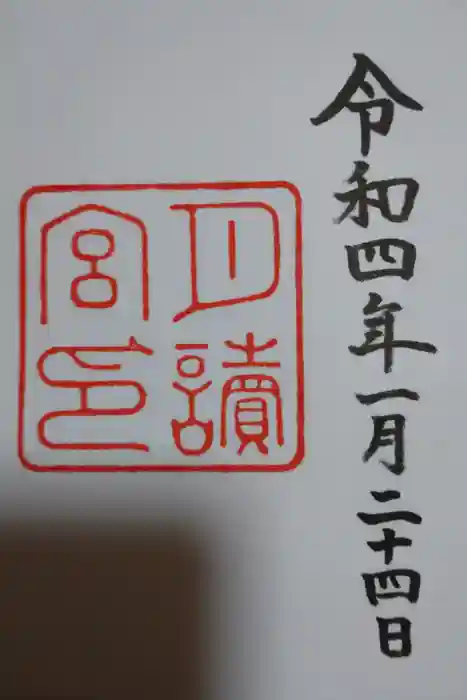 令和四年一月二十四日
月讀
宮印